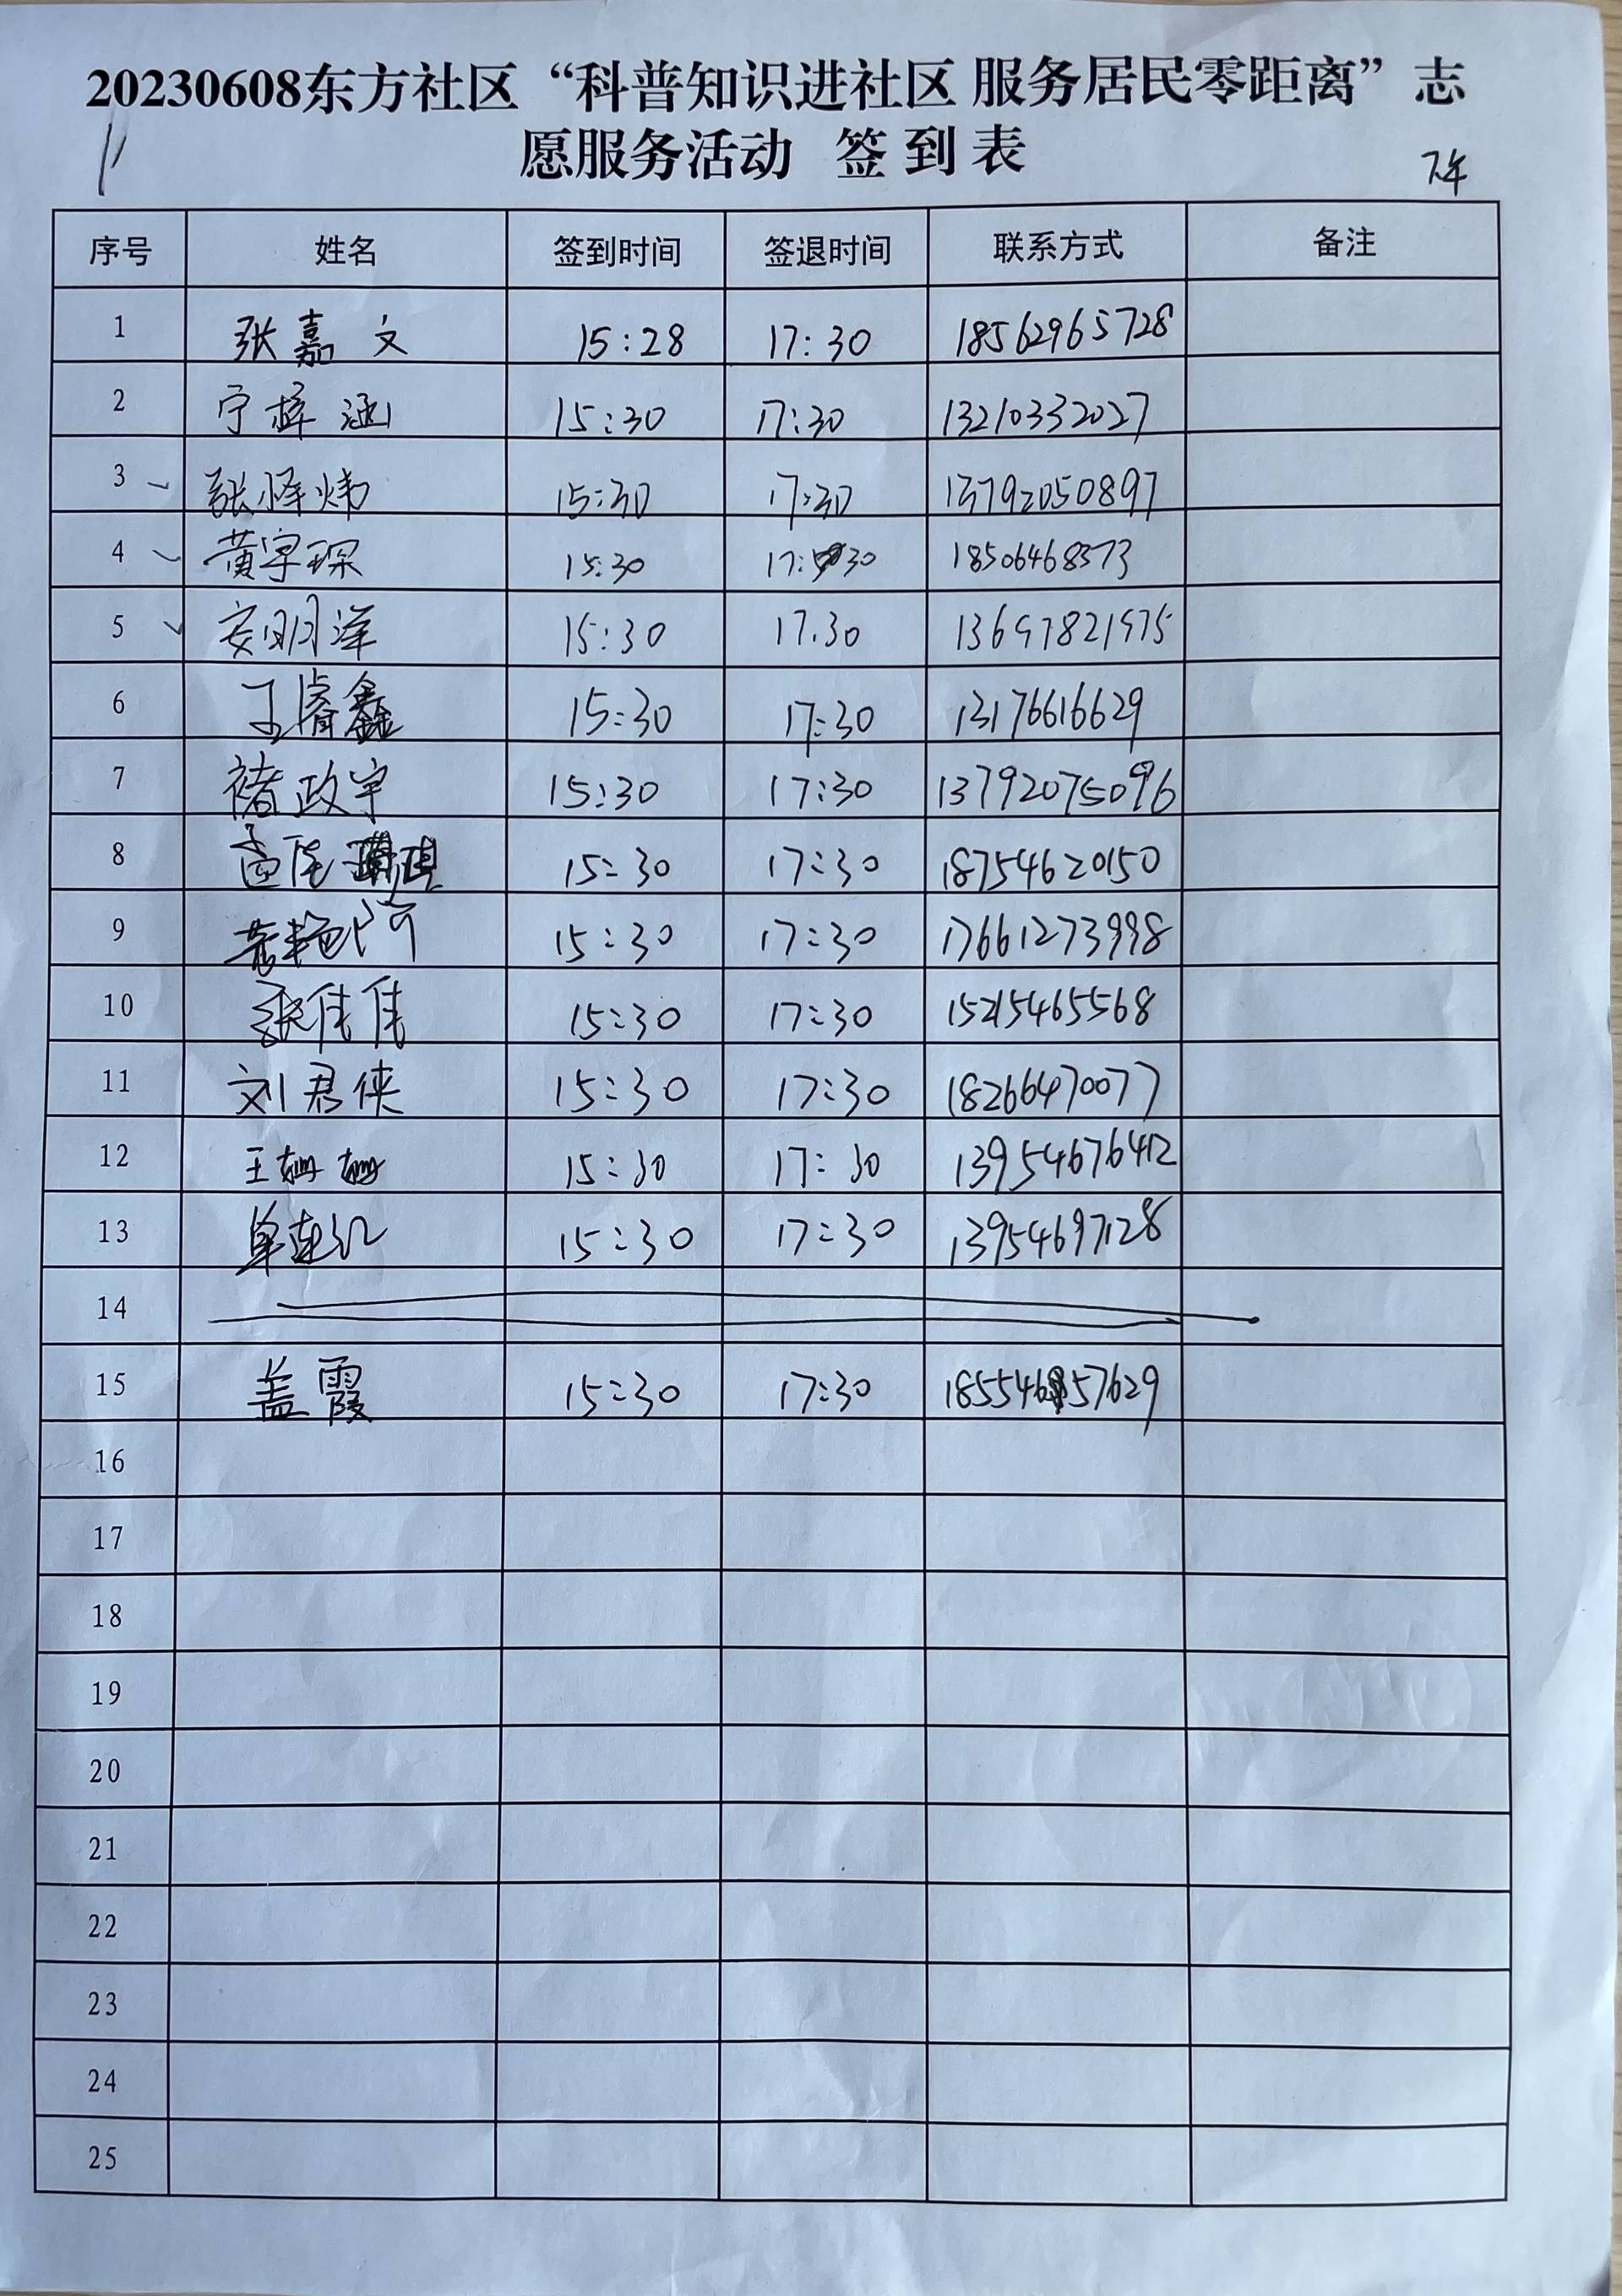 20230608东方社区“科普知识进社区 服务居民零距离”志
愿服务活动 签到表
下午
序号 姓名 签到时间 签退时间 联系方式 备注
1 张嘉文 15:28 17:30 18562965728
2 宁梓涵 15:30 17:30 13210332027
3 张怿炜 15:30 17:30 13792050897
4 黄宇琛 15:30 17:30 18506468373
5 安明洋 15:30 17.30 13697821975
6 王睿鑫 15:30 17:30 13176616629
7 褚政宇 15:30 17:30 13792075096
8 15:30 17:30 18754620150
9 15:30 17:30 17661273998
10 张佳佳 15:30 17:30 15215465568
11 刘君侠 15:30 17:30 18266470077
12 王姗姗 15:30 17:30 13954676412
13 单连红 15:30 17:30 13954697128
14
15 盖霞 15:30 17:30
16
17
18
19
20
21
22
23
24
25